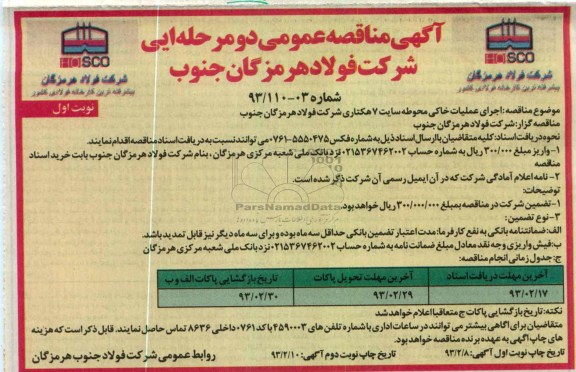 آگهی مناقصه عمومی دو مرحله‌ایی
شرکت فولاد هرمزگان جنوب
HOSCO
شرکت فولاد هرمزگان
پیشرفته ترین کارخانه فولادی کشور
HOSCO
شرکت فولاد هرمزگان
پیشرفته ترین کارخانه فولادی کشور
نوبت اول
شماره ۰۳-۹۳/۱۱۰
موضوع مناقصه: اجرای عملیات خاکی محوطه سایت ۷ هکتاری شرکت فولاد هرمزگان جنوب
مناقصه گزار: شرکت فولاد هرمزگان جنوب
نحوه دریافت اسناد: کلیه متقاضیان با ارسال اسناد ذیل به شماره فکس ۵۵۵۰۴۷۵-۰۷۶۱ می توانند نسبت به دریافت اسناد مناقصه اقدام نمایند.
۱-واریز مبلغ ۳۰۰/۰۰۰ ریال به شماره حساب ۰۲۱۵۳۶۷۴۶۲۰۰۲ نزد بانک ملی شعبه مرکزی هرمزگان، بنام شرکت فولاد هرمزگان جنوب بابت خرید اسناد
مناقصه
۲-نامه اعلام آمادگی شرکت که در آن ایمیل رسمی آن شرکت ذکر شده است.
توضیحات:
۱-تضمین شرکت در مناقصه بمبلغ ۳۰۰/۰۰۰/۰۰۰ ریال خواهد بود.
۳-نوع تضمین:
الف: ضمانتنامه بانکی به نفع کارفرما: مدت اعتبار تضمین بانکی حداقل سه ماه بوده و برای سه ماه دیگر نیز قابل تمدید باشد.
ب: فیش واریزی وجه نقد معادل مبلغ ضمانت نامه به شماره حساب ۰۲۱۵۳۶۷۴۶۲۰۰۲ نزد بانک ملی شعبه مرکزی هرمزگان
ج: جدول زمانی انجام مناقصه:
آخرین مهلت دریافت اسناد آخرین مهلت تحویل پاکات تاریخ بازگشایی پاکات الف و ب
۹۳/۰۲/۱۷ ۹۳/۰۲/۲۹ ۹۳/۰۲/۳۰
نکته: تاریخ بازگشایی پاکات ج متعاقبا اعلام خواهد شد
متقاضیان برای آگاهی بیشتر می توانند در ساعات اداری با شماره تلفن های ۴۵۹۰۰۰۳ با کد ۰۷۶۱ داخلی ۸۶۳۶ تماس حاصل نمایند. قابل ذکر است که هزینه
های چاپ آگهی به عهده برنده مناقصه خواهد بود.
تاریخ چاپ نوبت اول آگهی: ۹۳/۲/۸ تاریخ چاپ نوبت دوم آگهی: ۹۳/۲/۱۰ روابط عمومی شرکت فولاد جنوب هرمزگان
ParsNamadData